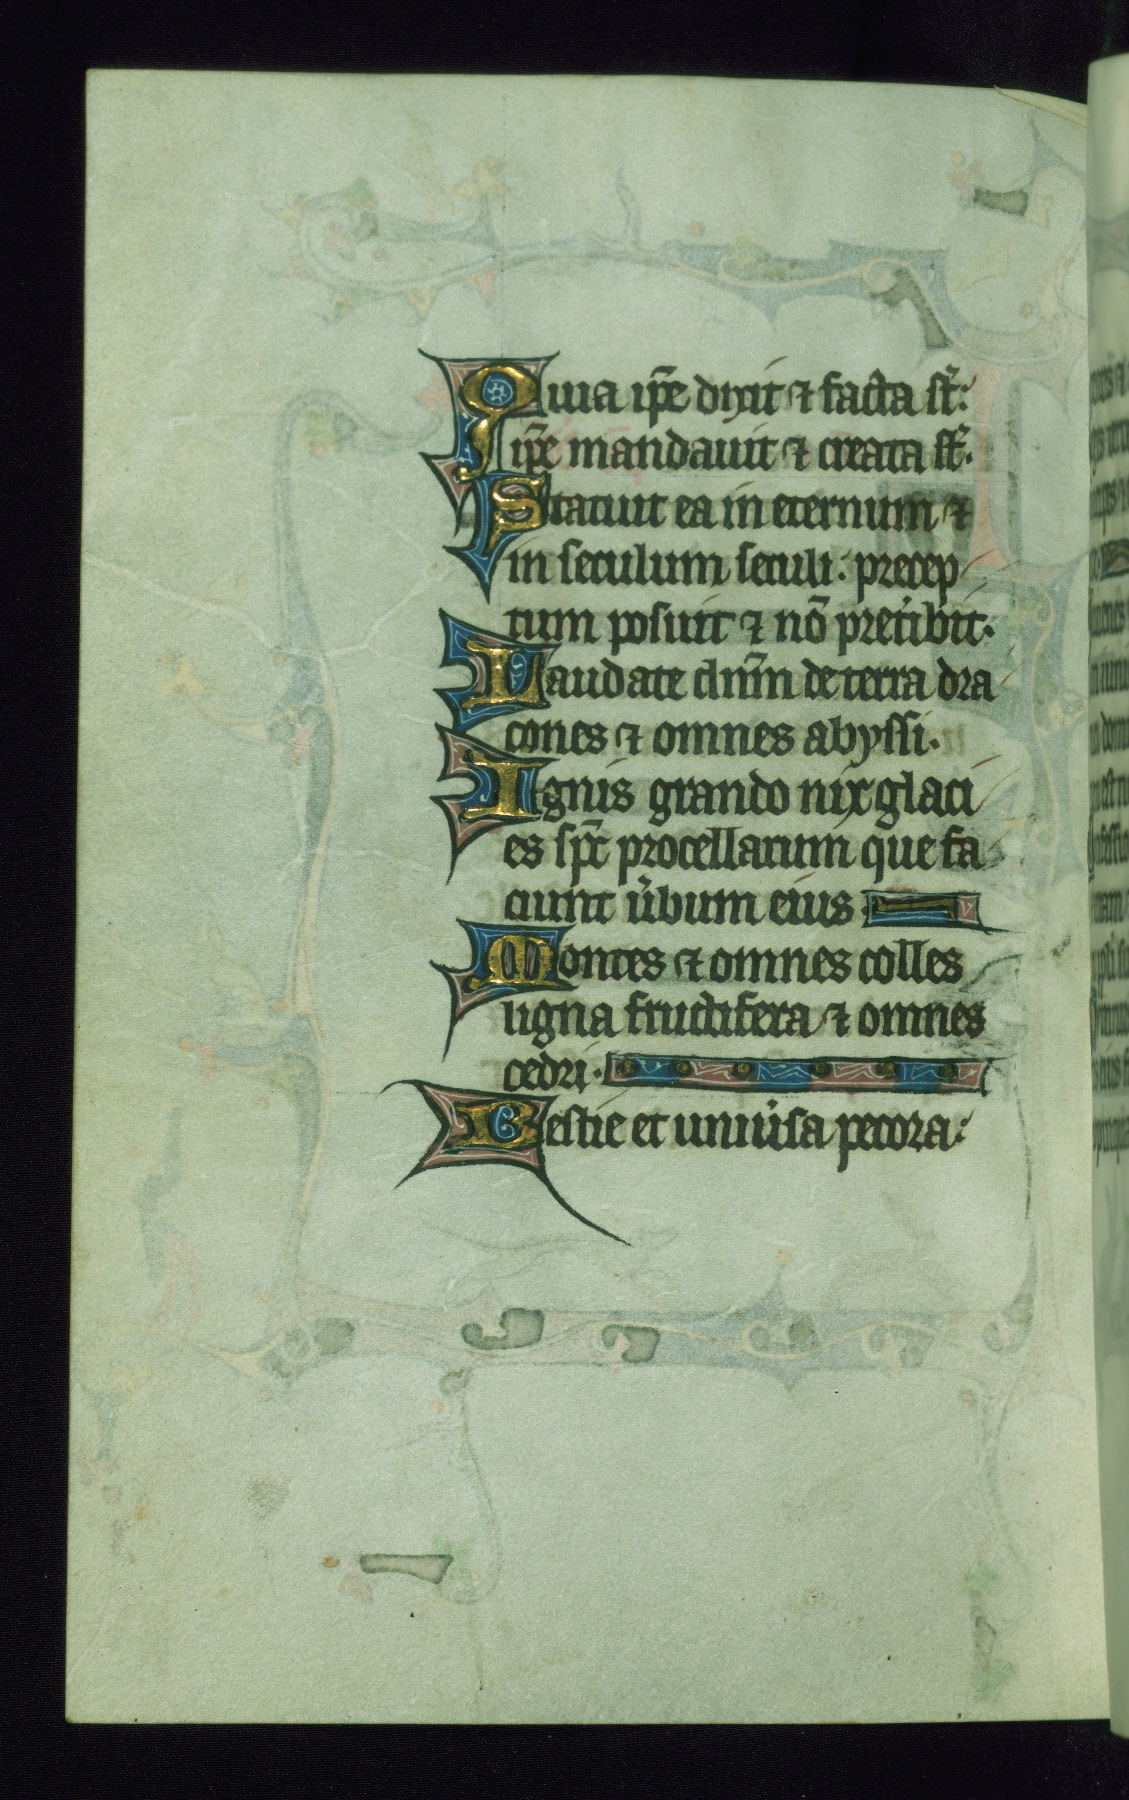 Quia ip̄e dixit ⁊ facta st̄:
ip̄e mandauit ⁊ creata st̄.
Statuit ea in eternum ⁊
in seculum seculi: precep
tum posuit ⁊ nō preͥibit.
Laudate dn̄m de terra dra
cones ⁊ omnes abyssi.
Ignis grando nix glaci
es sp̄c procellarum que fa
ciunt u̾bum eius
Montes ⁊ omnes colles
ligna fructifera ⁊ omnes
cedri.
Bestie et uniu̾sa pecora: